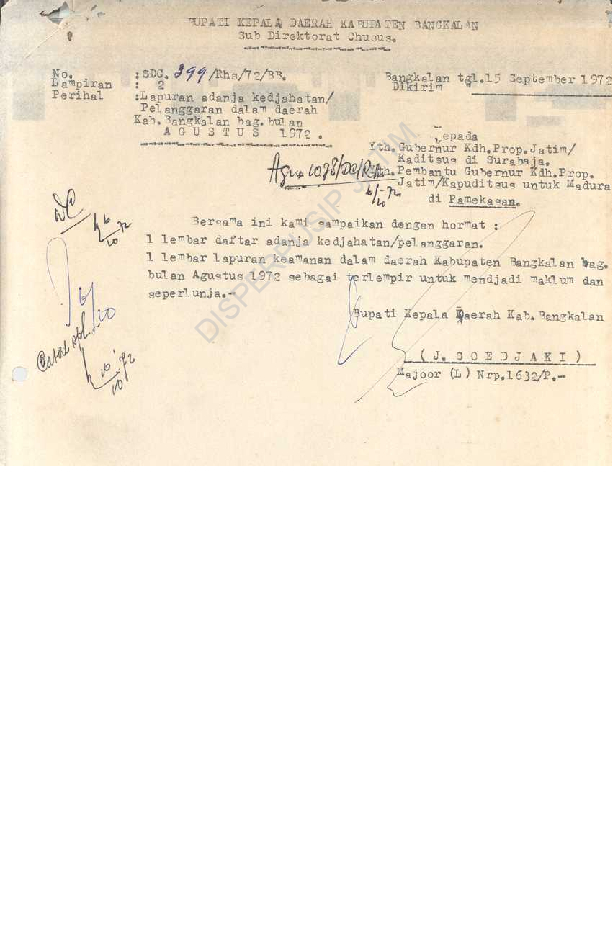 BUPATI KEPALA DAERAH KABUPATEN BANGKALAN
Sub Direktorat Chusus.
No. :SDC. 399/Rhs/72/BR.
Lampiran : 2
Perihal :Lapuran adanja kedjahatan/
Pelanggaran dalam daerah
Kab.Bangkalan bag.bulan
A G U S T U S 1972 .
Bangkalan tgl.15 September 1972
Dikirim
Kepada
Yth.Gubernur Kdh.Prop.Jatim/
Kaditsus di Surabaja.
Pembantu Gubernur Kdh.Prop.
Jatim/Kapuditsus untuk Madura
di Pamekasan.
Bersama ini kami sampaikan dengan hormat :
1 lembar daftar adanja kedjahatan/pelanggaran.
1 lembar lapuran keamanan dalam daerah Kabupaten Bangkalan bag.
bulan Agustus 1972 sebagai terlempir untuk mendjadi maklum dan
seperlunja.-
Bupati Kepala Daerah Kab. Bangkalan
( J. S O E D J A K I )
Majoor (L) Nrp.1632/P.-
DISPERPUSIP JATIM